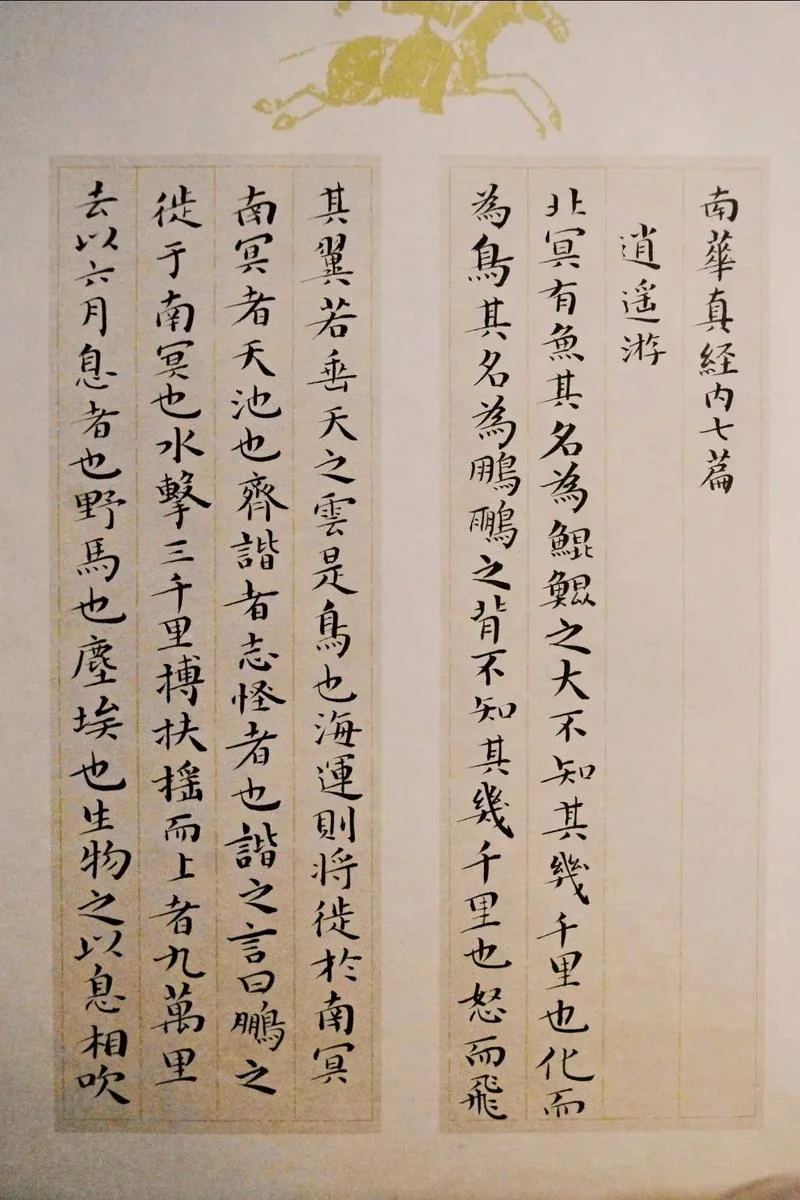 南華真経内七篇
逍遥游
北冥有魚其名為鯤鯤之大不知其幾千里也化而
為鳥其名為鵬鵬之背不知其幾千里也怒而飛
其翼若垂天之雲是鳥也海運則将徙於南冥
南冥者天池也齊諧者志怪者也諧之言曰鵬之
徙于南冥也水擊三千里搏扶揺而上者九萬里
去以六月息者也野馬也塵埃也生物之以息相吹